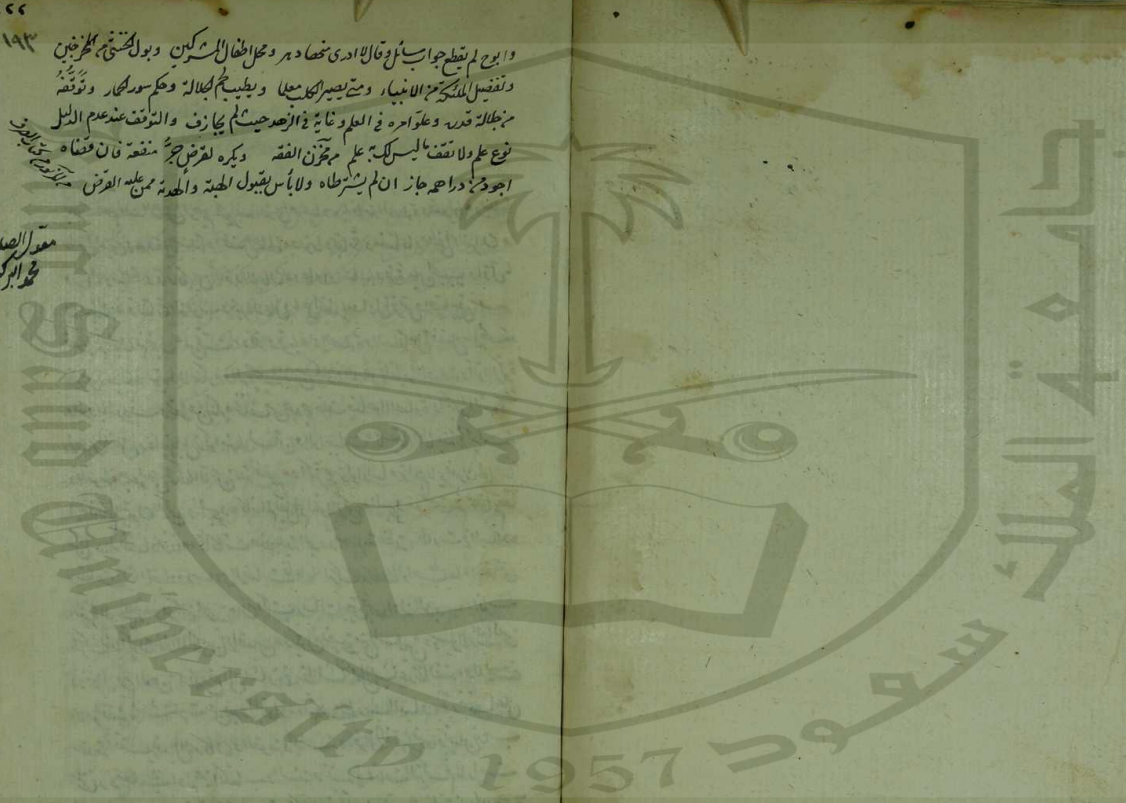 ١٩٣
وابوح لم يقطع جواب سائل وقال لا ادرى منها دهر ومحل اطفال المشركين وبول الخنثى من المخرجين
وتفضيل الملئكة من الانبياء ومتى يصير الكلب معلما ويطيب لحم الجلالة وحكم سور الحمار وتوقفه
من جلالة قدره وعلو امره في العلم وغاية في الزهد حيث لم يجازف والتوقف عند عدم الدليل
نوع علم ولا تقف ما ليس لك به علم من مخزن الفقه ويكره لقرض جر منفعة فان قضاه
اجود من دراهمه جاز ان لم يشترطاه ولا بأس بقبول الهبة والهدية ممن عليه القرض
محمد
جامعة الملك سعود
King Saud University
1957